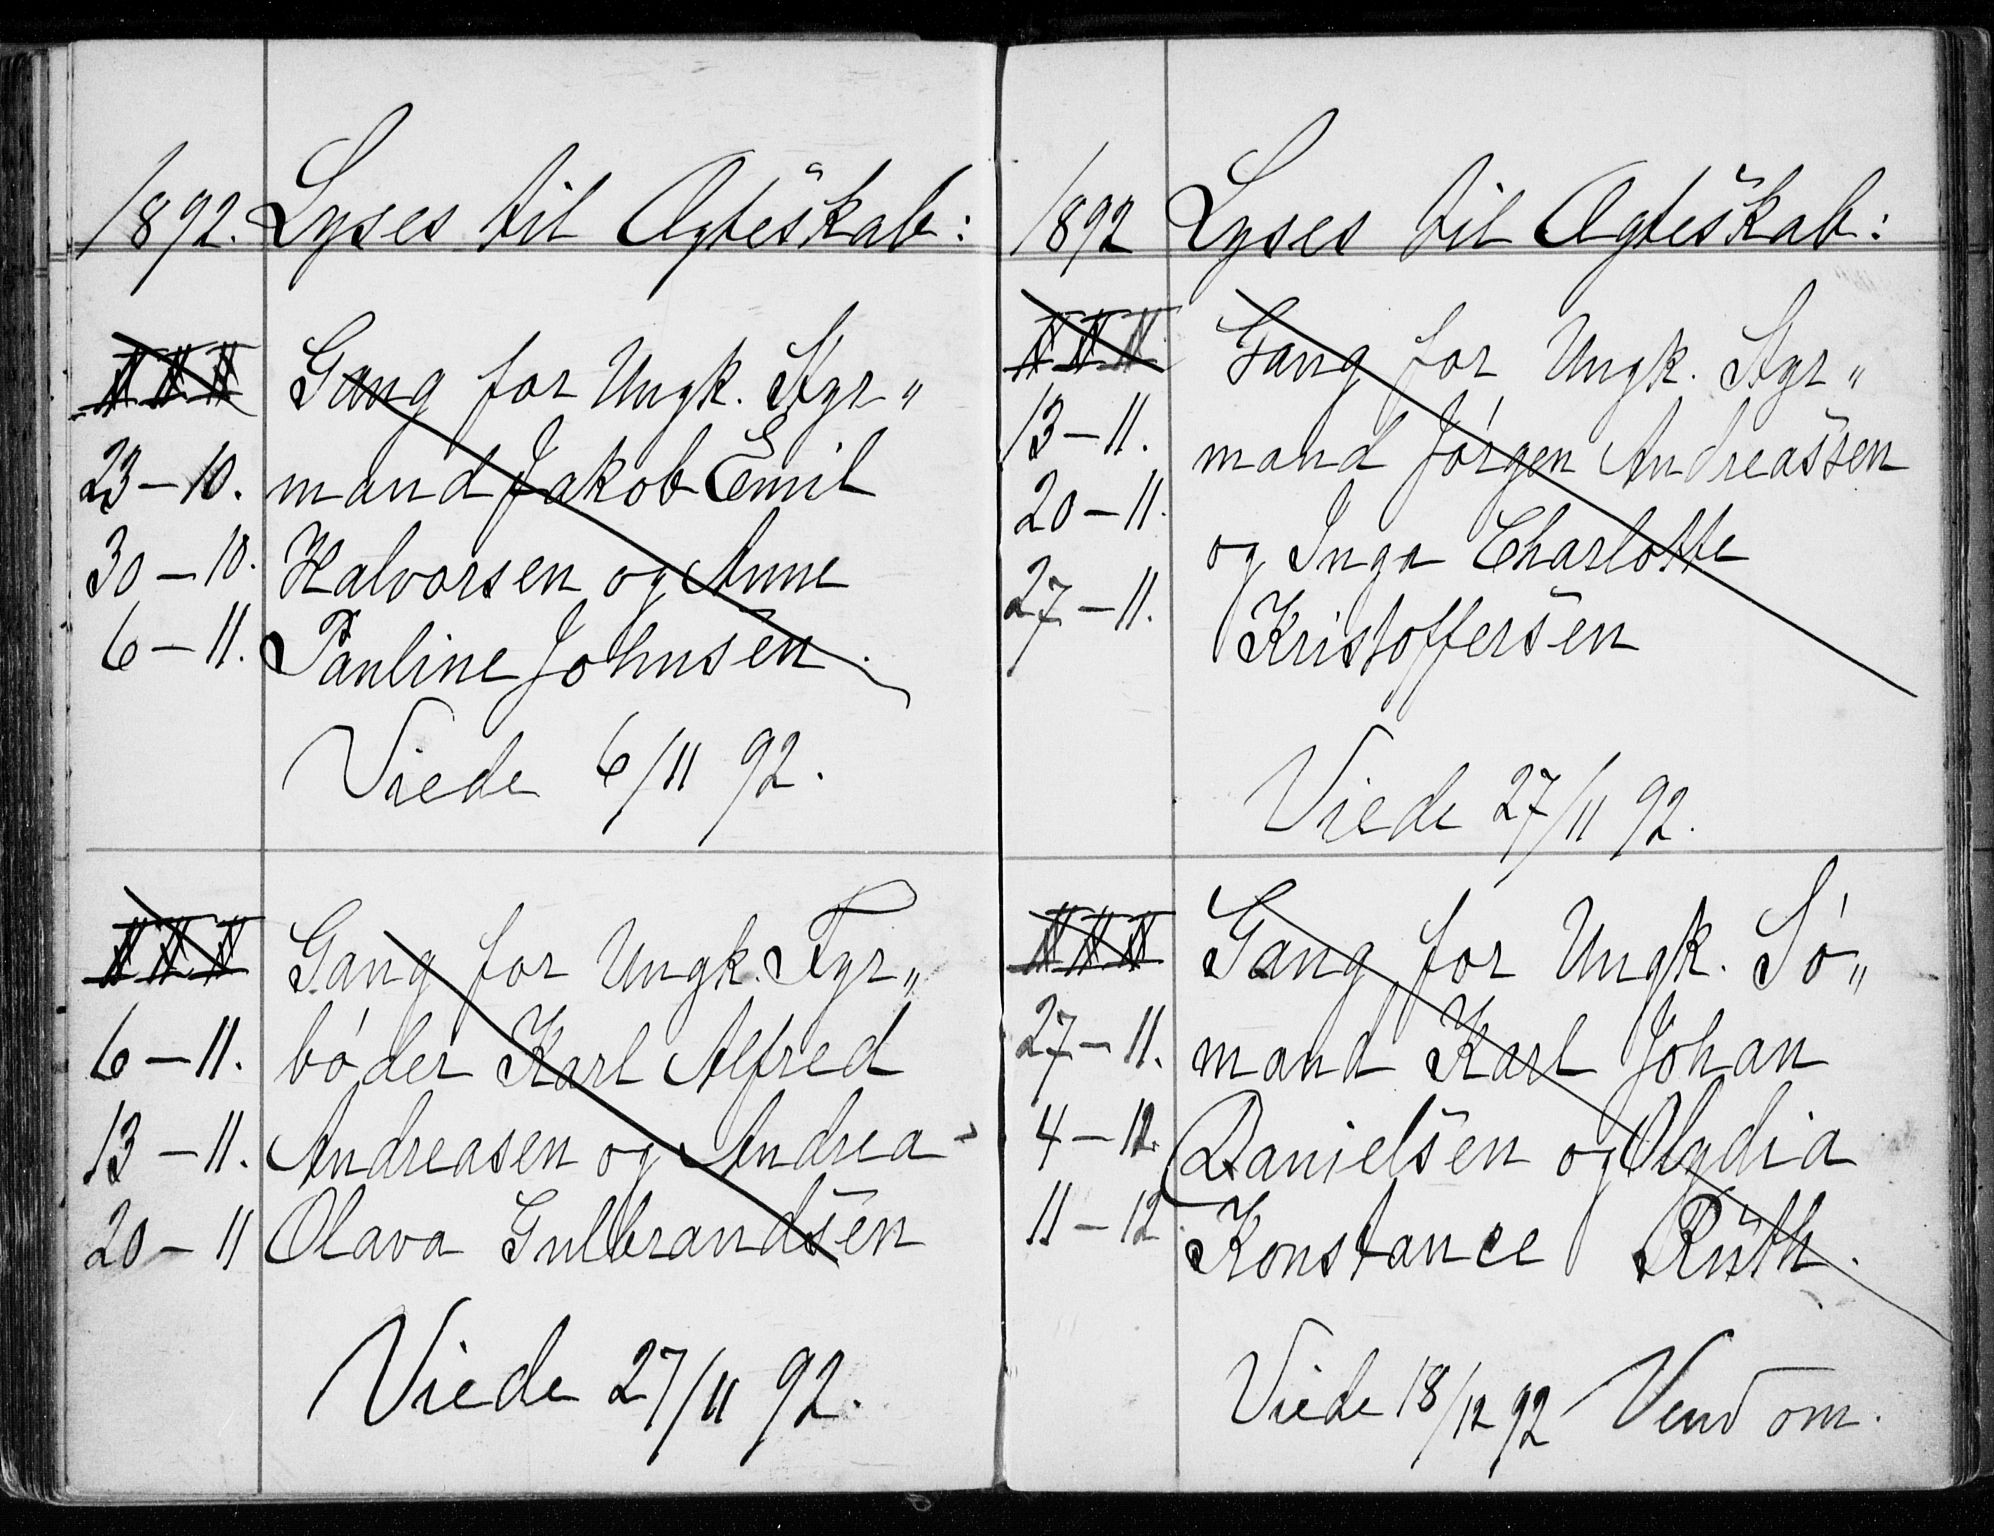 1892. Lyses til Ægteskab:
I I I Gang for Ungk. Styr„
23-10. mand Jakob Emil
30-10. Halvorsen og Anne
6-11. Pauline Johnsen.
Viede 6/11 92.
I I I Gang for Ungk. Fyr„
6-11. böder Karl Alfred
13-11. Andreasen og Andrea-
20-11 Olava Gulbrandsen
Viede 27/11 92.
1892 Lyses til Ægteskab:
I I I Gang for Ungk. Styr„
13-11. mand Jörgen Andreassen
20-11. og Inga Charlotte
27-11. Kristoffersen
Viede 27/11 92.
I I I Gang for Ungk. Sö„
27-11. mand Karl Johan
4-12. Danielsen og Olydia
11-12. Konstance Rüth.
Viede 18/12 92 Vend om.